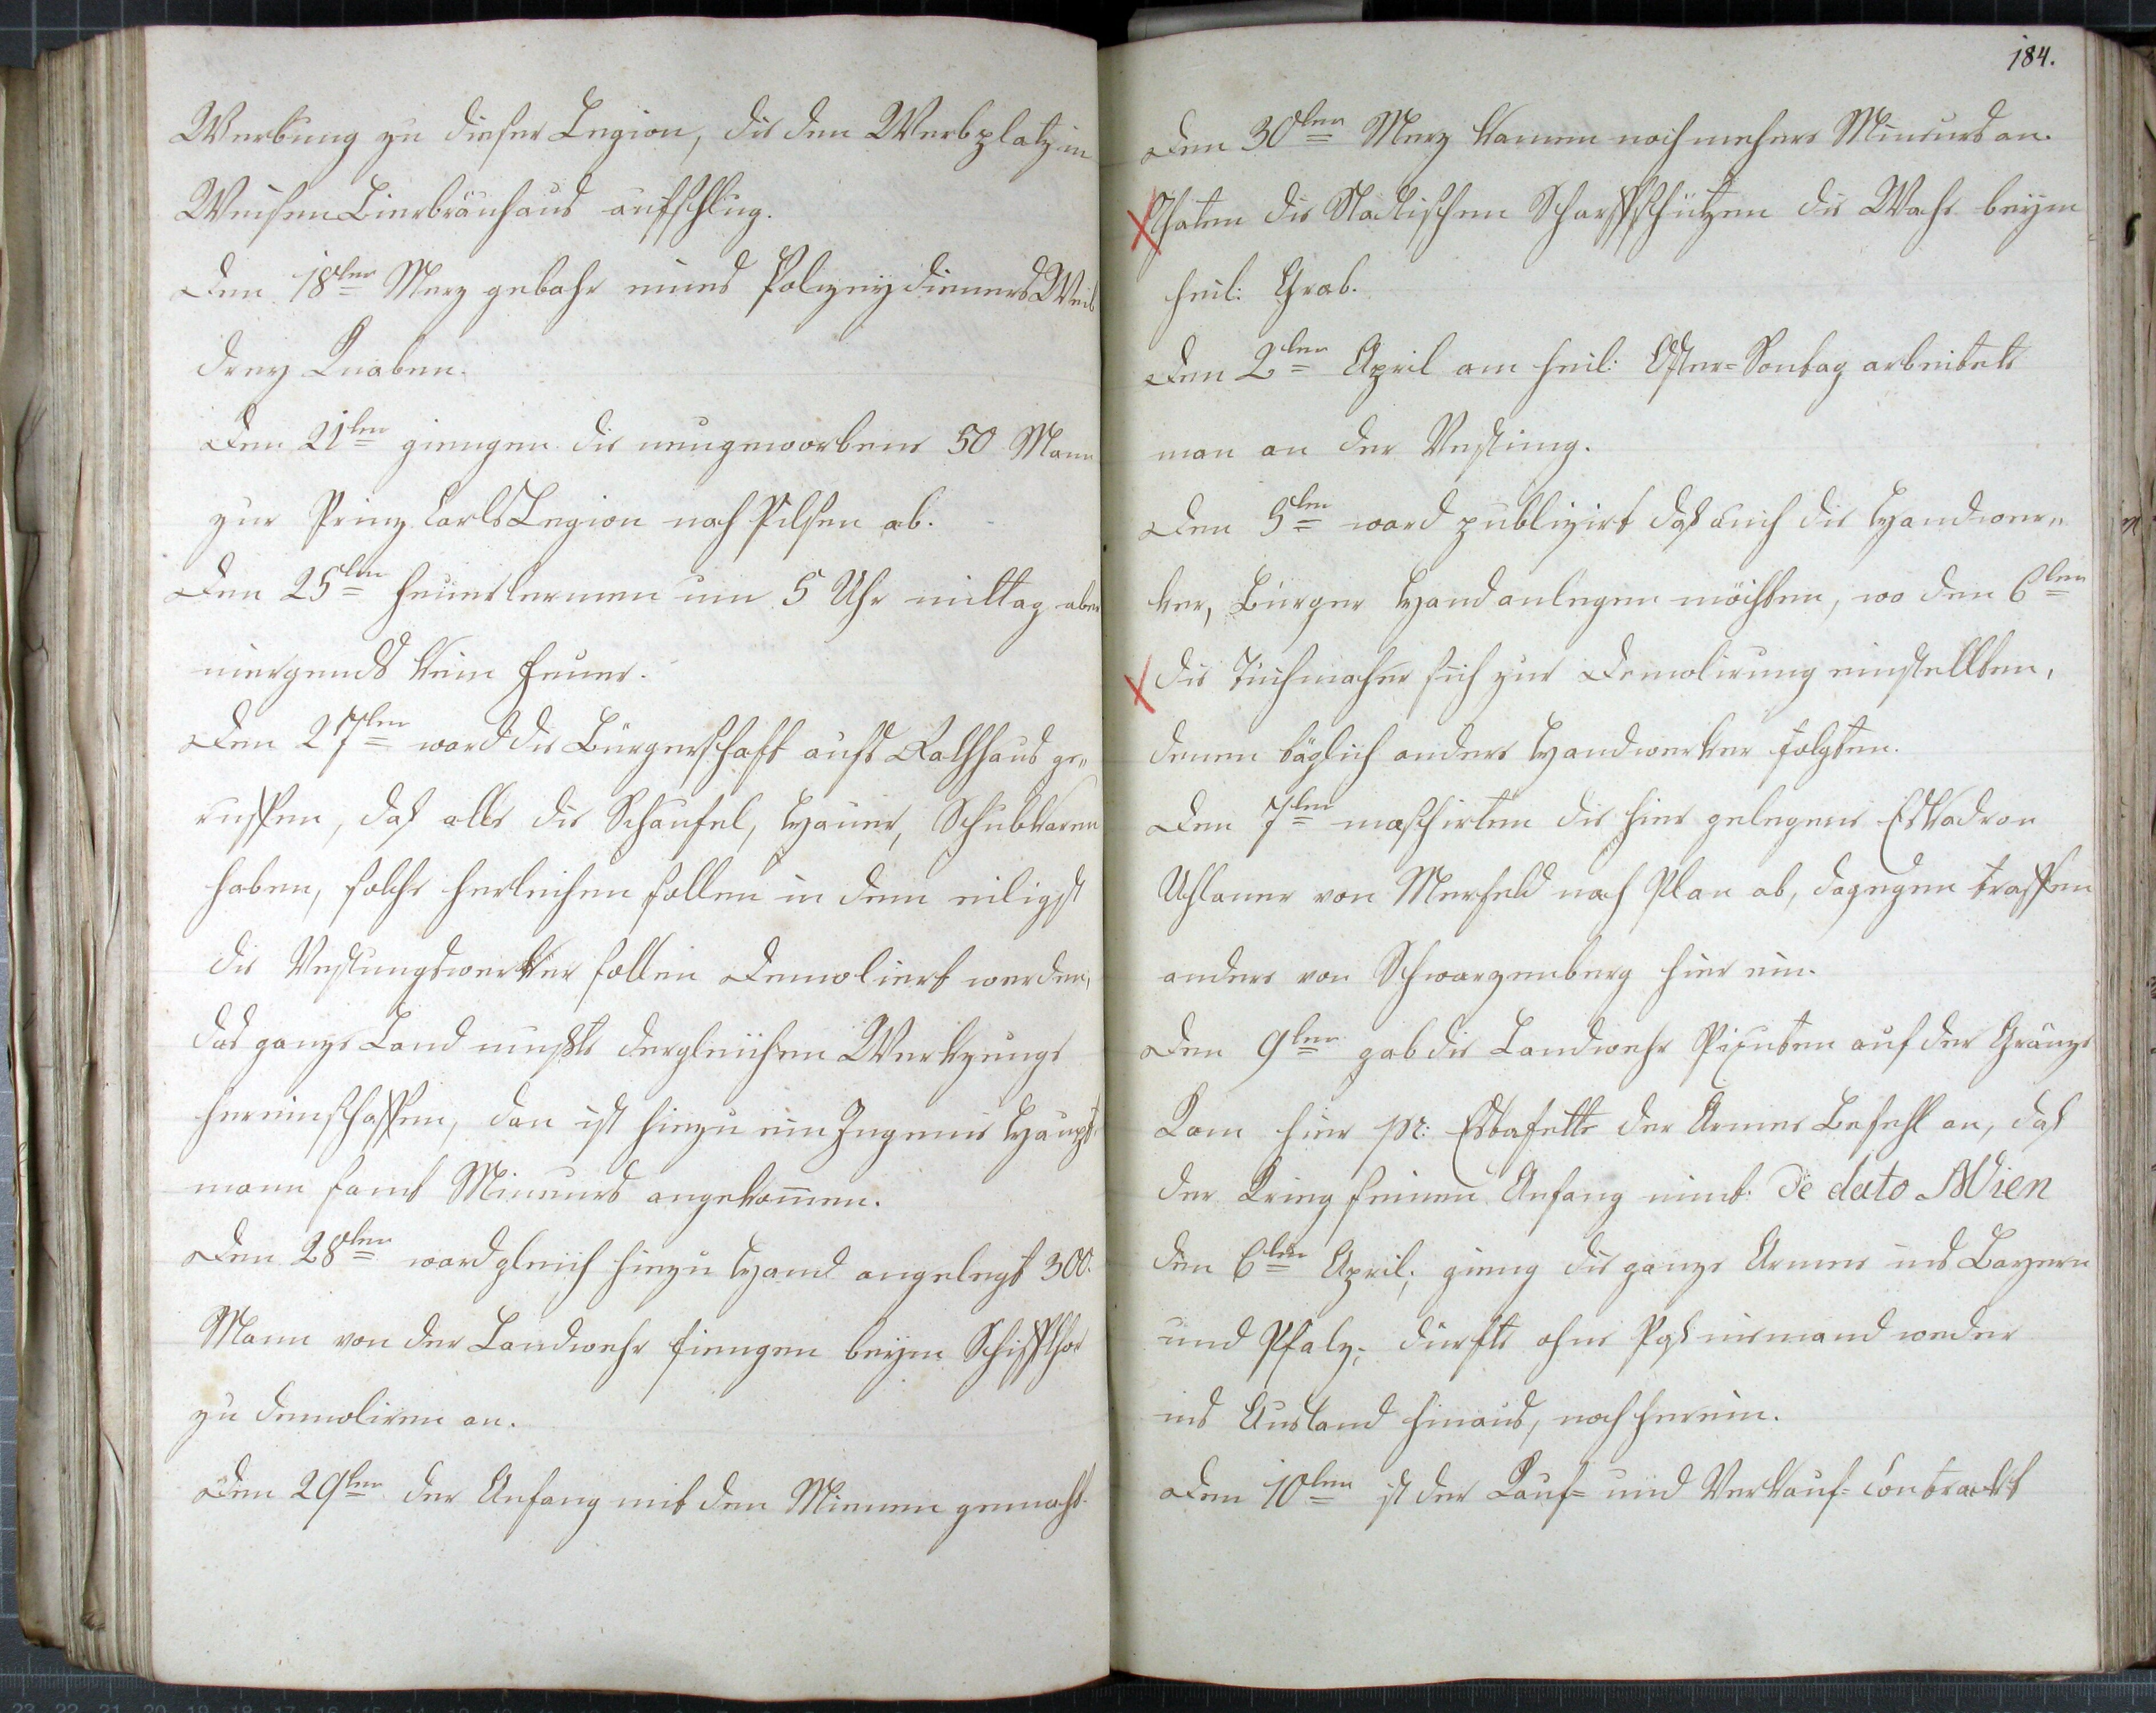 Werbung zu dieser Legion, die den Werbplatz in
Weisen Bierbräuhaus aufschlug.
Den 18ten Merz gebahr eines Polizeydieners Weib
drey Knaben.
Den 21ten giengen die neugeworbene 50 Mann
zur Prinz Carls Legion nach Pilsen ab.
Den 25ten feuerlermen um 5 Uhr mittag aber
niergends kein feuer.
Den 27ten ward die Bürgerschaft aufs Rathhaus ge„
ruffen, daß alle die Schaufel, Hauer, Schubkaren
haben, solche herleihen sollen in dem eiligst
die Vestungswerker sollen Demoliert werden,
das ganze Land mußte dergleichen Werkzeuge
hereinschaffen, dan ist hiezu ein Ingenie Haupt„
mann samt Mineurs angekom̅en.
Den 28ten ward gleich hiezu Hand angelegt 300.
Mann von der Landwehr fiengen beym Schifthor
zu demoliren an.
Den 29ten der Anfang mit den Minnen gemacht.
184.
Den 30ten Merz kamen noch mehere Mineurs an.
Thaten die Stadtischen Scharffschützen die Wache beym
heil: Grab.
Den 2ten April am heil: Oster=Sontag arbeitete
man an der Vestung.
Den 5ten ward publizirt daß auch die Handwer„
ker, Bürger Hand anlegen möchten, wo den 6ten
die Tuchmacher sich zur Demolirung einstellten,
denen täglich andere Handwerker folgten.
Den 7ten maschirten die hier gelegene Eskadron
Uhlaner von Merfeld nach Plan ab, dagegen traffen
andere von Schwarzenberg hier ein.
Den 9ten gab die Landwehr Piquten auf der Gränze
Kam hier pr: Estafette der Armee Befehl an, daß
der Krieg seinen Anfang nimt: De dato Wien
den 6ten April; gieng die ganze Armee ins Bayern
und Pfalz; durfte ohne Paß niemand weder
ins Ausland hinaus, noch herein.
Den 10ten ist der Kauf= und Verkauf=Contrackt